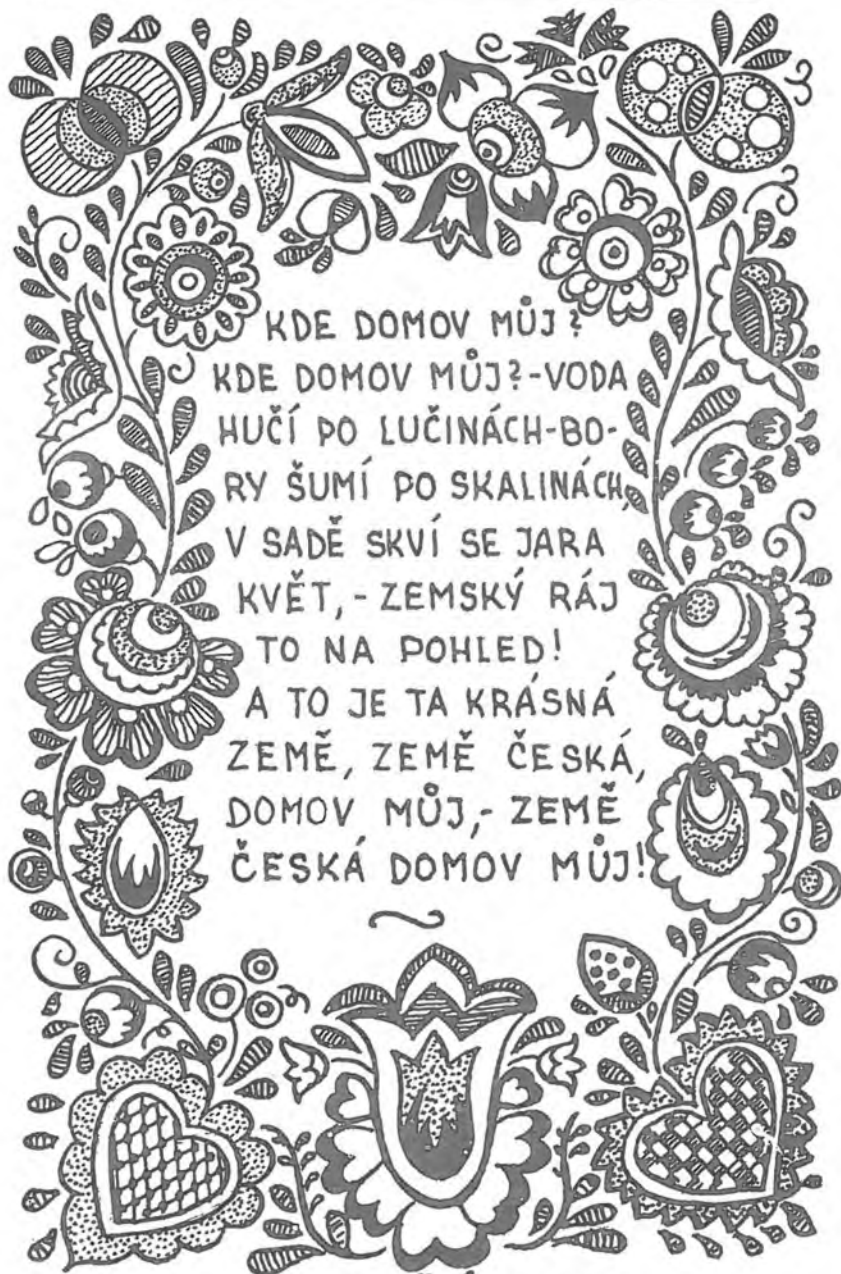 KDE DOMOV MŮJ?
KDE DOMOV MŮJ?-VODA
HUČÍ PO LUČINÁCH-BO-
RY ŠUMÍ PO SKALINÁCH,
V SADĚ SKVÍ SE JARA
KVĚT,- ZEMSKÝ RÁJ
TO NA POHLED!
A TO JE TA KRÁSNÁ
ZEMĚ, ZEMĚ ČESKÁ,
DOMOV MŮJ,- ZEMĚ
ČESKÁ DOMOV MŮJ!